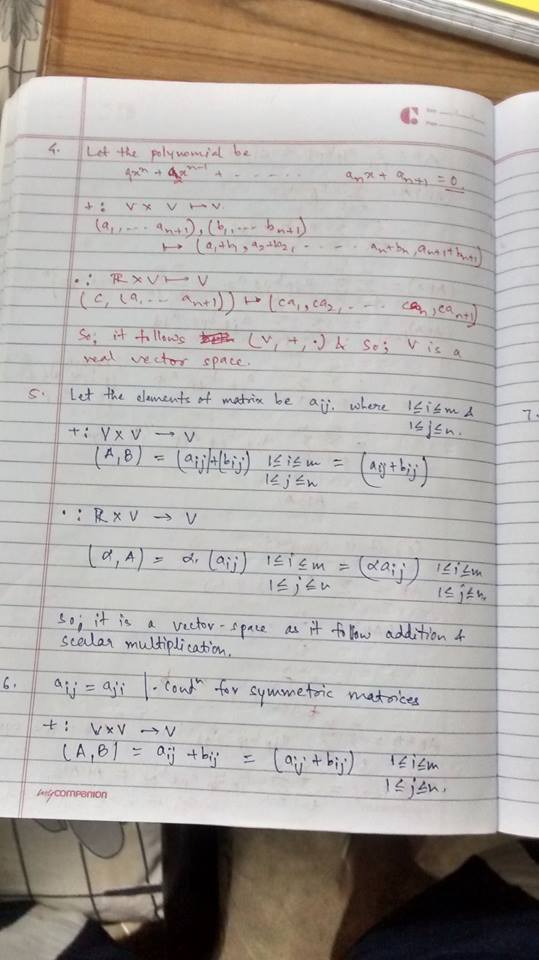 4. Let the polynomial be
a₁xⁿ + a₂xⁿ⁻¹ + ------ aₙx + aₙ₊₁ = 0.
+ : V × V ↦ V
(a₁, ... aₙ₊₁), (b₁, ... bₙ₊₁)
↦ (a₁+b₁, a₂+b₂, ------ aₙ+bₙ, aₙ₊₁+bₙ₊₁)
• : ℝ × V ↦ V
(c, (a₁ ... aₙ₊₁)) ↦ (ca₁, ca₂, ---- caₙ, caₙ₊₁)
So; it follows (V, +, •) & So; V is a
real vector space.
5. Let the elements of matrix be aij, where 1≤i≤m &
1≤j≤n.
+ : V × V → V
(A, B) = (aij)+(bij) 1≤i≤m = (aij + bij)
1≤j≤n
• : ℝ × V → V
(α, A) = α. (aij) 1≤i≤m = (αaij) 1≤i≤m
1≤j≤n 1≤j≤n.
So; it is a vector-space as it follow addition &
scalar multiplication.
6. aij = aji |. condⁿ for symmetric matrices
+ : V×V → V
(A, B) = aij + bij = (aij + bij) 1≤i≤m
1≤j≤n.
mycompanion
7.